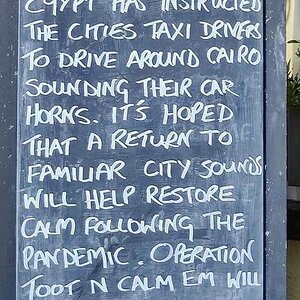 EGYPT HAS INSTRUCTED
THE CITIES TAXI DRIVERS
TO DRIVE AROUND CAIRO
SOUNDING THEIR CAR
HORNS. IT'S HOPED
THAT A RETURN TO
FAMILIAR CITY SOUNDS
WILL HELP RESTORE
CALM FOLLOWING THE
PANDEMIC. OPERATION
TOOT N CALM EM WILL